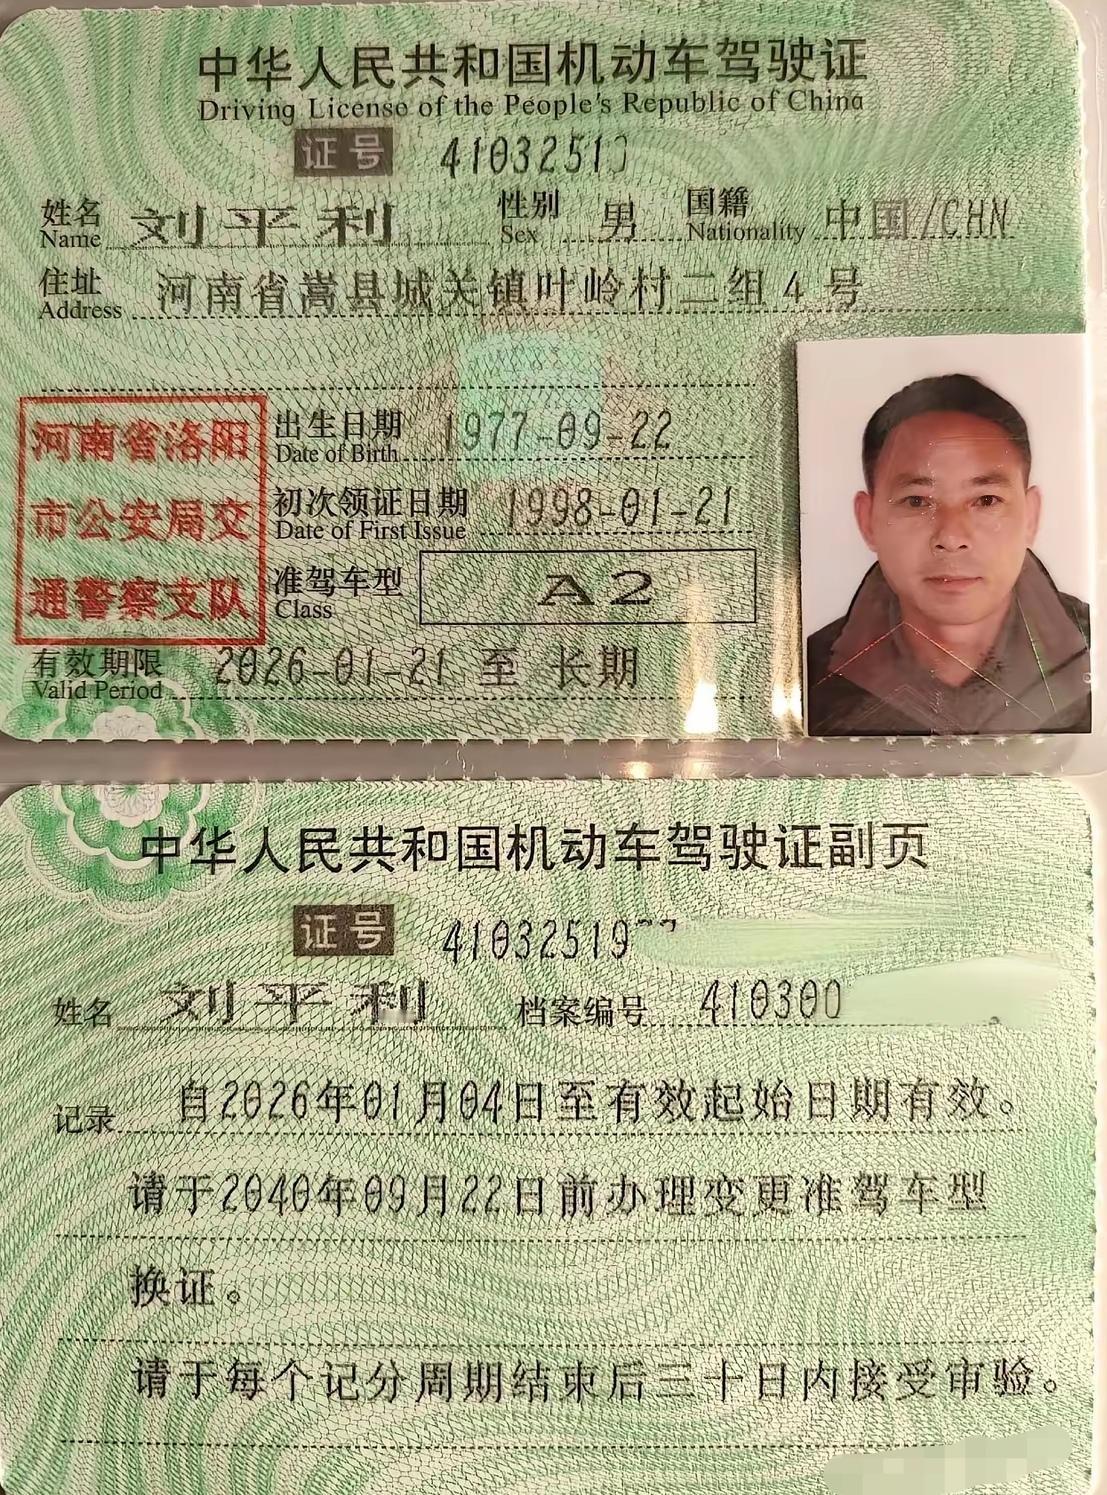 中华人民共和国机动车驾驶证
Driving License of the People's Republic of China
证号 41032519
姓名 刘平利 性别 男 国籍 中国/CHN
Name Sex Nationality
住址 河南省嵩县城关镇叶岭村二组4号
Address
河南省洛阳
市公安局交
通警察支队
出生日期 1977-09-22
Date of Birth
初次领证日期 1998-01-21
Date of First Issue
准驾车型 A2
Class
有效期限 2026-01-21 至 长期
Valid Period
中华人民共和国机动车驾驶证副页
证号 41032519
姓名 刘平利 档案编号 410300
记录 自2026年01月04日至有效起始日期有效。
请于2040年09月22日前办理变更准驾车型
换证。
请于每个记分周期结束后三十日内接受审验。